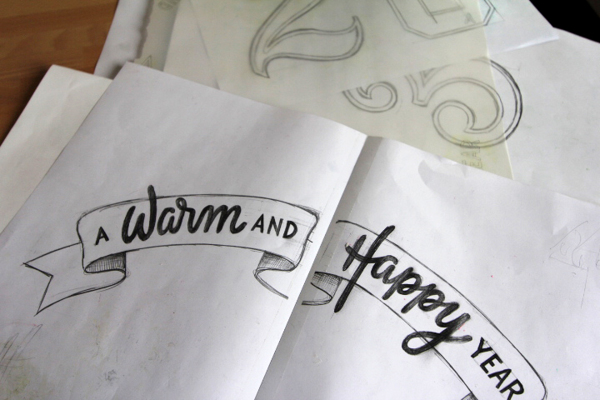 A Warm AND
Happy YEAR
25